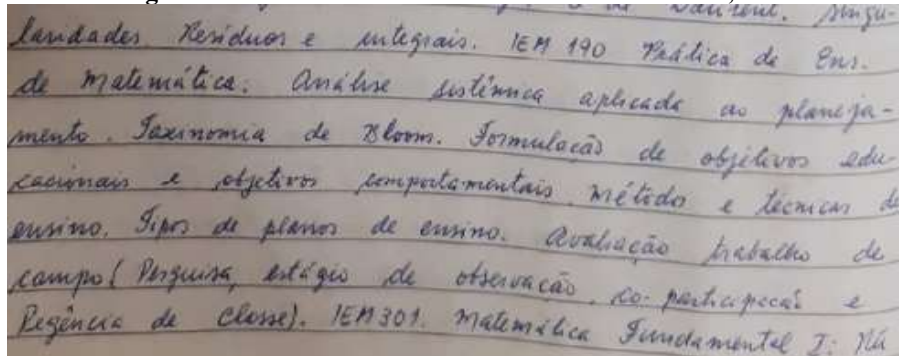 de Laurent. Singu-
laridades. Resíduos e integrais. IEM 190 Prática de Ens.
de Matemática: Análise sistêmica aplicada ao planeja-
mento. Taxinomia de Bloom. Formulação de objetivos edu-
cacionais e objetivos comportamentais. Método e técnicas de
ensino. Tipos de planos de ensino. Avaliação trabalho de
campo (Pesquisa, estágio de observação, co-participação e
Regência de Classe). IEM301. Matemática Fundamental I: Nú